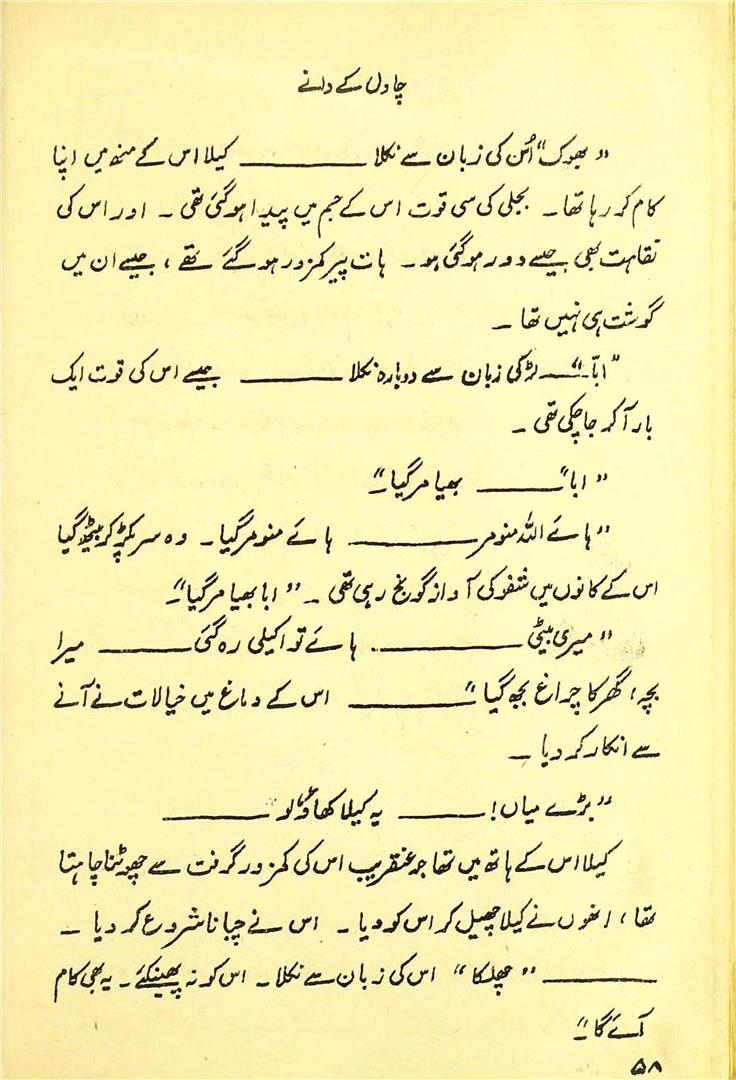 چاول کے دانے
"بھوک" اُس کی زبان سے نکلا ــــــــــ کیلا اس کے منہ میں اپنا
کام کر رہا تھا۔ بجلی کی سی قوت اس کے جسم میں پیدا ہوگئی تھی۔ اور اس کی
نقاہت بھی جیسے دور ہوگئی ہو۔ ہات پیر کمزور ہو گئے تھے، جیسے ان میں
گوشت ہی نہیں تھا۔
"ابّا"ــــ لڑکی زبان سے دوبارہ نکلا ــــــــــ جیسے اس کی قوت ایک
بار آکر جاچکی تھی۔
"ابا" ــــــــــ بھیا مرگیا"۔
"ہائے اللہ منو مر ــــــــــ ہائے منو مرگیا۔ وہ سر پکڑ کر بیٹھ گیا
اس کے کانوں میں شفو کی آواز گونج رہی تھی۔ "ابا بھیا مرگیا"۔
"میری بیٹی ــــــــــ ہائے تو اکیلی رہ گئی ــــــــــ میرا
بچہ، گھر کا چراغ بجھ گیا" ــــــــــ اس کے دماغ میں خیالات نے آنے
سے انکار کر دیا۔
"بڑے میاں! ــــــــــ یہ کیلا کھاؤ لو ــــــــــ
کیلا اس کے ہاتھ میں تھا جو عنقریب اس کی کمزور گرفت سے چھوٹنا چاہتا
تھا، انھوں نے کیلا چھیل کر اس کو دیا۔ اس نے چبانا شروع کر دیا۔
ــــــــــ "چھلکا" اس کی زبان سے نکلا۔ اس کو نہ پھینکئے۔ یہ بھی کام
آئے گا"۔
۵۸